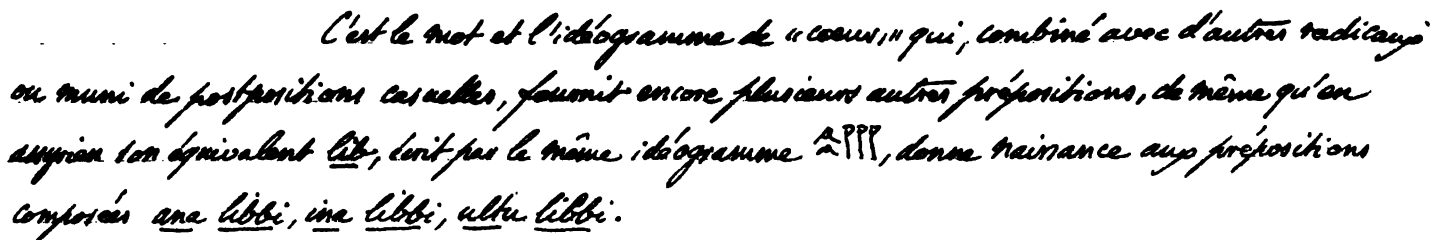 C'est le mot et l'idéogramme de "coeur," qui, combiné avec d'autres radicaux
ou muni de postpositions casuelles, fournit encore plusieurs autres prépositions, de même qu'en
assyrien son équivalent lib, écrit par le même idéogramme, donne naissance aux prépositions
composées ana libbi, ina libbi, ultu libbi.